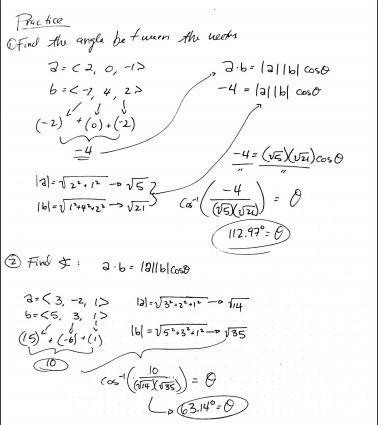 Practice
① Find the angle between the vectors
a = < 2, 0, -1>
b = < -1, 4, 2>
(-2) + (0) + (-2)
-4
|a| = √2²+1² → √5
|b| = √1²+4²+2² → √21
a·b = |a||b| cosθ
-4 = |a||b| cosθ
-4 = (√5)(√21) cosθ
cos⁻¹ (-4 / (√5)(√21)) = θ
112.97° = θ
② Find ∡: a·b = |a||b|cosθ
a = < 3, -2, 1>
b = <5, 3, 1>
(15) + (-6) + (1)
10
|a| = √3²+2²+1² → √14
|b| = √5²+3²+1² → √35
cos⁻¹ (10 / (√14)(√35)) = θ
63.14° = θ